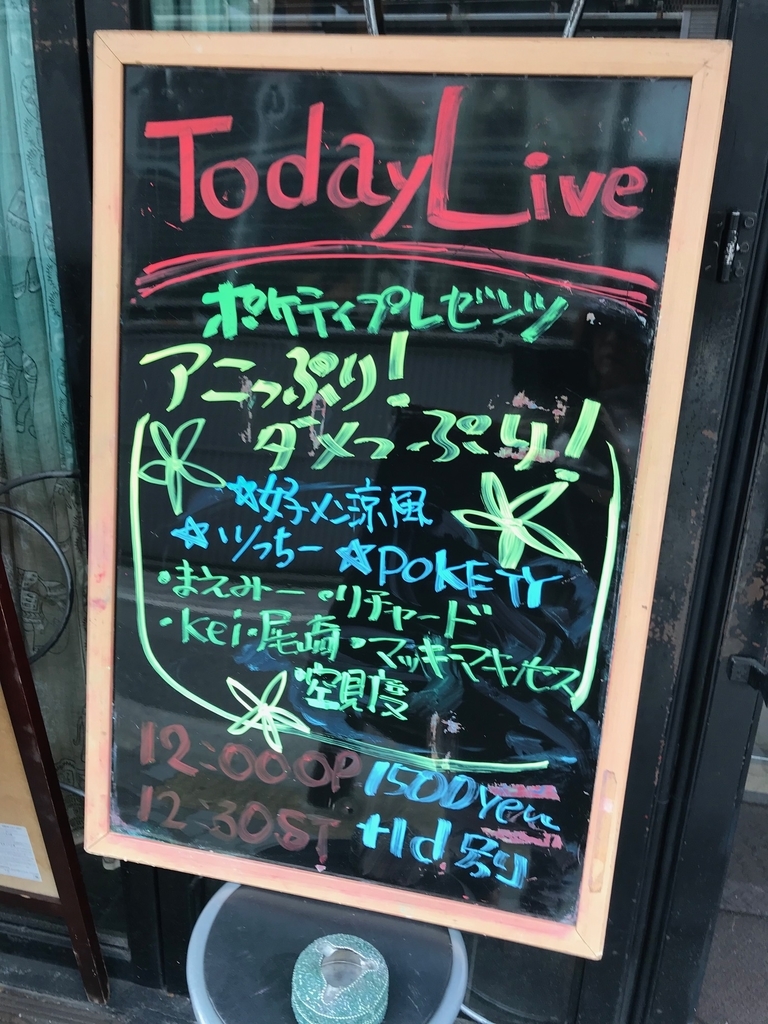 Today Live
ポケティプレゼンツ
アニっぷり!
ダメっぷり!
☆好メン涼風
☆ツっちー ☆POKETY
・まえみー・リチャード
・kei・尾崎・マッキーマキノセス
・空見度
12:00OP 1500yen
12:30ST +1d別